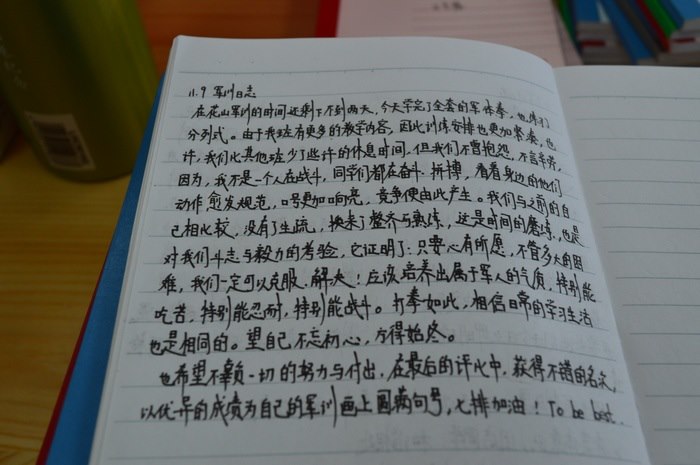 11.9 军训日志
在花山军训的时间还剩下不到两天，今天学完了全套的军体拳，也练习了
分列式。由于我班有更多的教学内容，因此训练安排也更加紧凑，也
许，我们比其他班少了些许的休息时间，但我们不曾抱怨，不言辛苦，
因为，我不是一个人在战斗，同学们都在奋斗·拼搏，看看身边的他们
动作愈发规范，口号更加响亮，竞争便由此产生。我们与之前的自
己相比较，没有了生疏，换来了整齐与熟练，这是时间的磨练，也是
对我们斗志与毅力的考验，它证明了：只要心有所愿，不管多大的困
难，我们一定可以克服、解决！应该培养出属于军人的气质，特别能
吃苦，特别能忍耐，特别能战斗。打拳如此，相信日常的学习生活
也是相同的。望自己不忘初心，方得始终。
也希望不辜负一切的努力与付出，在最后的评比中，获得不错的名次，
以优异的成绩为自己的军训画上圆满句号，七排加油！To be best.